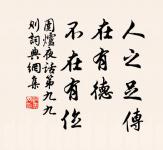 人之足傳
在有德
不在有位
圍爐夜話第九九
則詞典網集